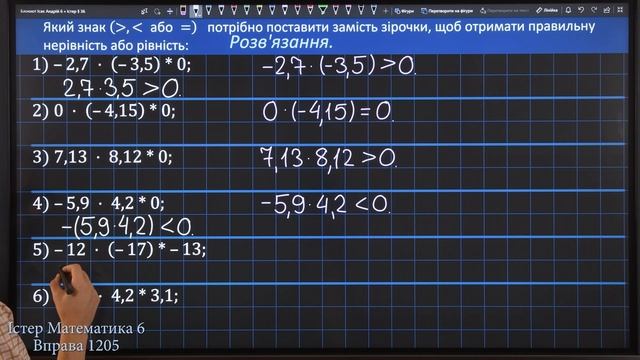 Який знак (>, < або =) потрібно поставити замість зірочки, щоб отримати правильну
нерівність або рівність: Розв'язання.
1) – 2,7 · (– 3,5) * 0; –2,7·(–3,5) > 0.
2,7·3,5 > 0.
2) 0 · (– 4,15) * 0; 0·(–4,15) = 0.
3) 7,13 · 8,12 * 0; 7,13·8,12 > 0.
4) – 5,9 · 4,2 * 0; –5,9·4,2 < 0.
–(5,9·4,2) < 0.
5) – 12 · (– 17) * – 13;
6) · 4,2 * 3,1;
Істер Математика 6
Вправа 1205